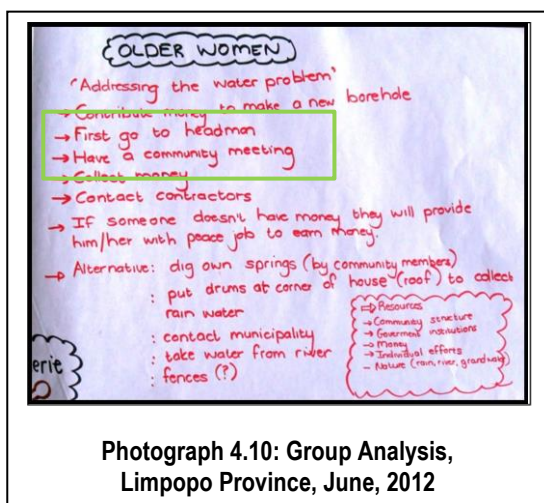 OLDER WOMEN
'Addressing the water problem'
→ Contribute money to make a new borehole
→ First go to headman
→ Have a community meeting
→ Collect money
→ Contact contractors
→ If someone doesn't have money they will provide
him/her with peace job to earn money.
→ Alternative: dig own springs (by community members)
: put drums at corner of house (roof) to collect
rain water
: contact municipality
: take water from river
: fences (?)
⇨ Resources
→ Community structure
→ Goverment institutions
→ Money
→ Individual efforts
– Nature (rain, river, ground water)
erie
Photograph 4.10: Group Analysis,
Limpopo Province, June, 2012